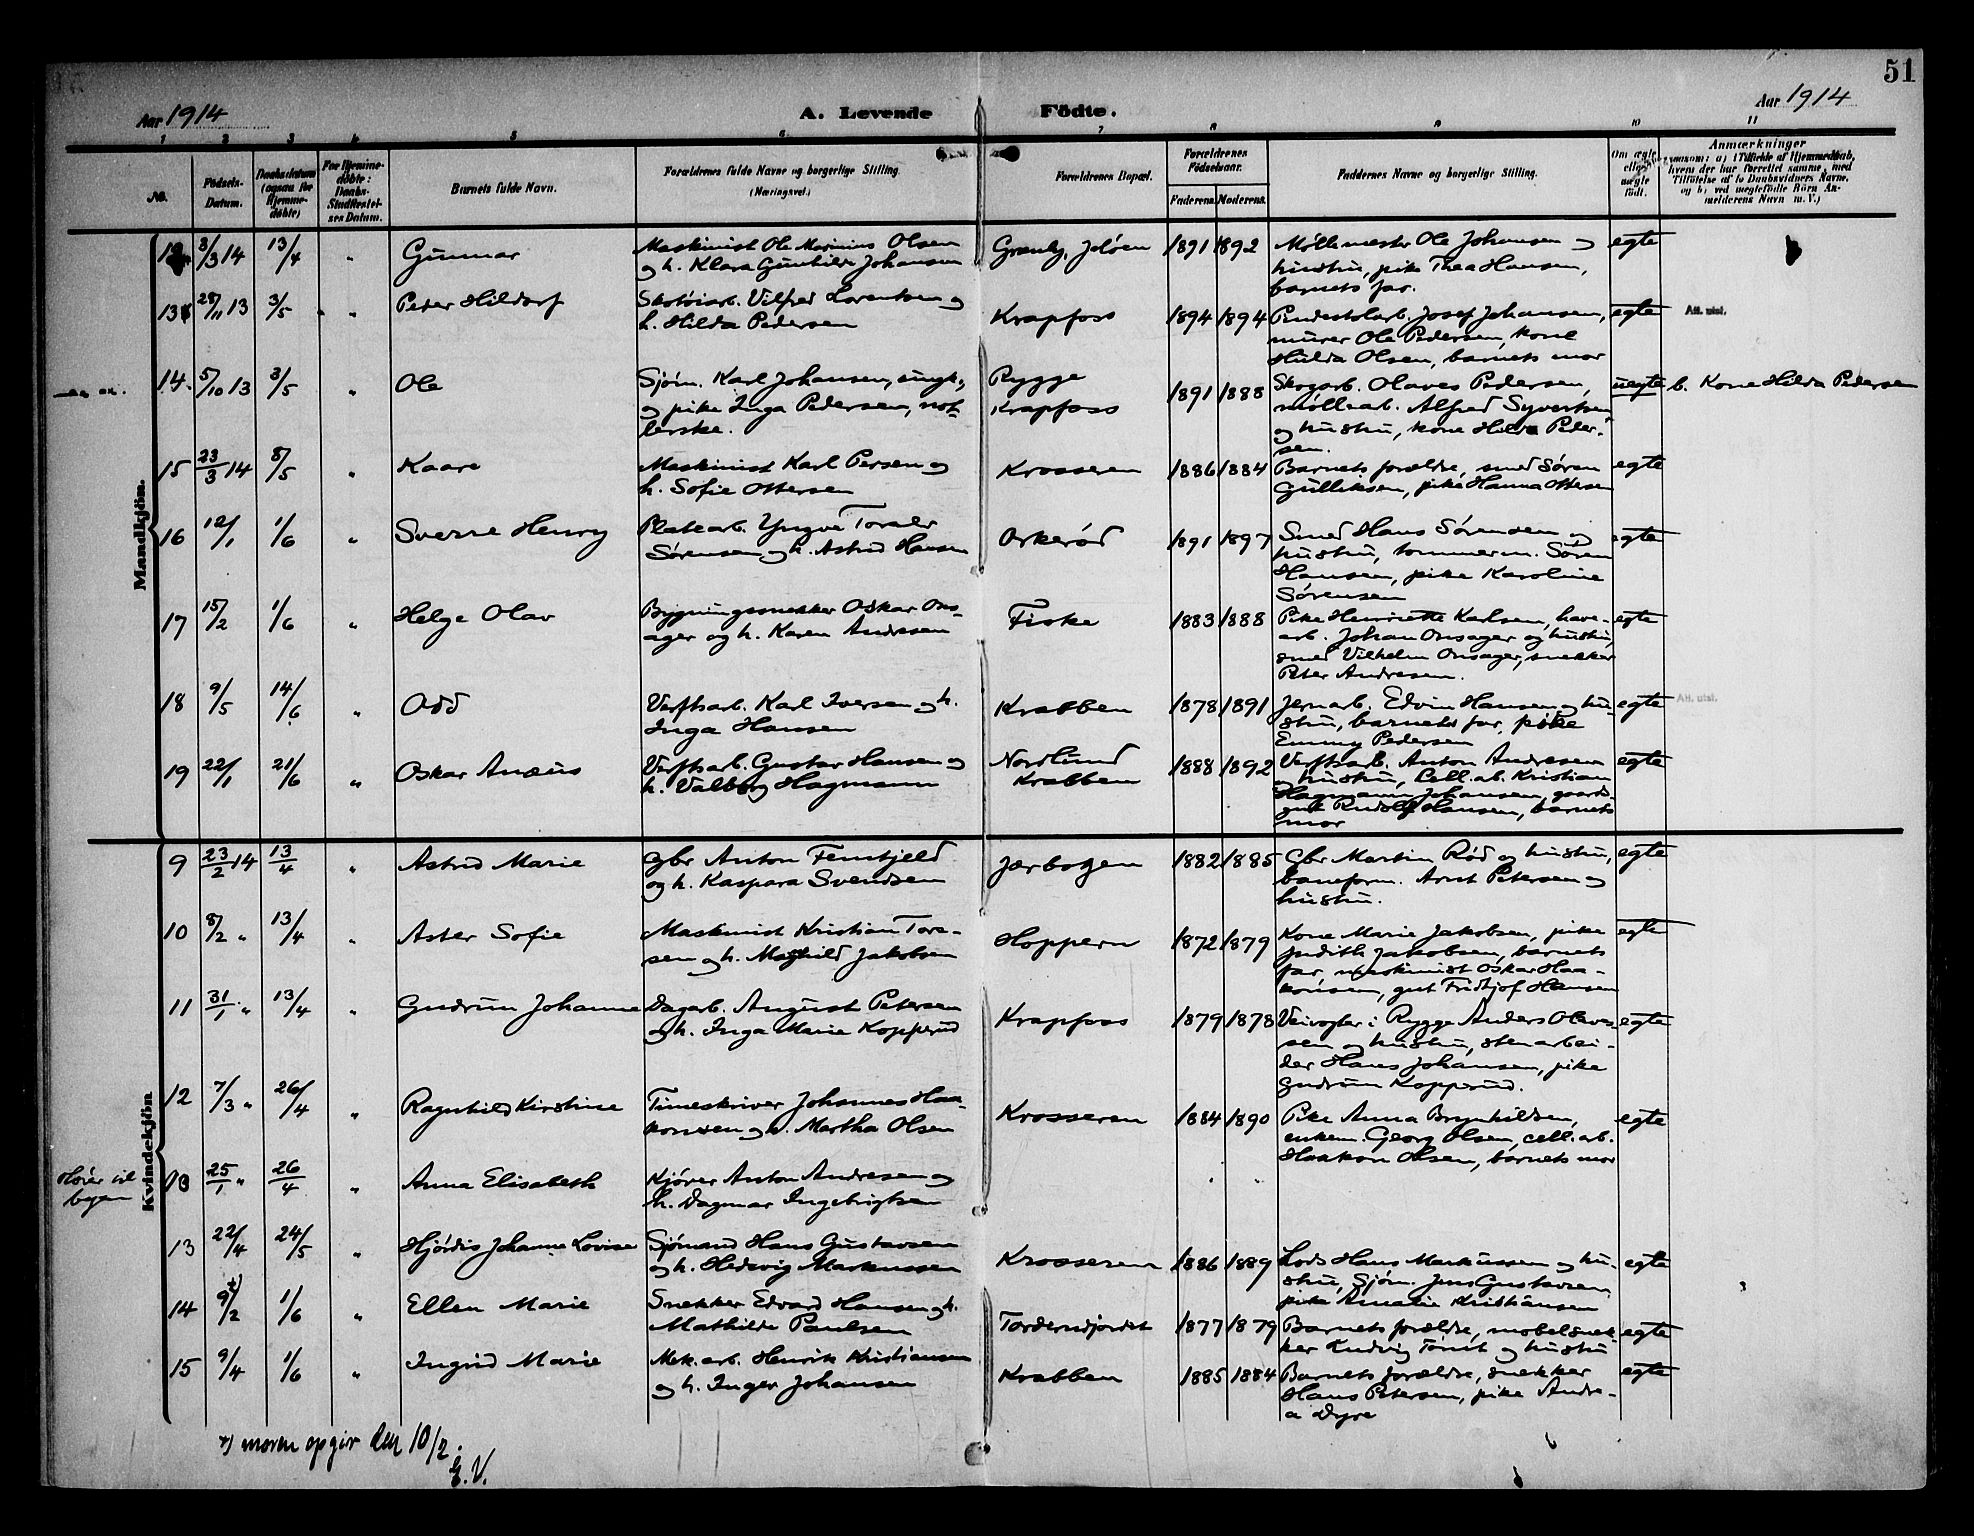 51
Aar 1914
A. Levende Födte.
Aar 1914
1 2 3 4 5 6 7 8 9 10 11
No.
Födsels-
Datum.
Daabsdatum
(ogsaa for
Hjemme-
döbte)
For Hjemme-
döbte:
Daabs-
Stadfæstel-
ses Datum.
Barnets fulde Navn.
Forældrenes fulde Navne og borgerlige Stilling.
(Næringsvei.)
Forældrenes Bopæl.
Forældrenes
Födselsaar.
Faderens. Moderens.
Faddernes Navne og borgerlige Stilling.
Om ægte
eller
uægte
födt.
Anmærkninger
saasom: a) i Tilfælde af Hjemmedaab,
hvem der har forrettet samme, med
Tilföielse af to Daabsvidners Navne,
og b) ved uægtefödte Börn An-
melderens Navn m. V.)
Mandkjön.
12 3/3 14 13/4 " Gunnar
Maskinist Ole Marinius Olsen
og h. Klara Gunhilda Johansen
Grønli, Jeløen 1891 1892
Møllemester Ole Johansen og
hustru, pike Thea Hansen,
barnets far.
egte
13 28/11 13 3/5 " Peder Hildorf
Skotøiarb. Vilfred Lorentsen og
h. Hilda Pedersen
Krapfoss 1894 1894
Pindestolarb. Josef Johansen,
murer Ole Pedersen, kone
Hulda Olsen, barnets mor
egte Att. utst.
14. 5/10 13 3/5 " Ole
Sjøm. Karl Johansen, ungk.,
og pike Inga Pedersen, vof-
lerske.
Rygge
Krapfoss 1891 1888
Skogarb. Olaves Pedersen,
møllearb. Alfred Syvertsen
og hustru, kone Hilda Peder-
sen.
uegte b. Kone Hilda Pedersen
15 23/3 14 8/5 " Kaare
Maskinist Karl Persen og
h. Sofie Ottersen
Krosseren 1886 1884
Barnets forældre, smed Søren
Gulliksen, pike Hanna Ottersen
egte
16 12/1 1/6 " Sverre Henry
Platearb. Yngve Toralv
Sørensen og h. Astrid Hansen
Orkerød 1891 1897
Smed Hans Sørensen og
hustru, tømmerm. Søren
Hansen, pike Karoline
Sørensen
egte
17 15/2 1/6 " Helge Olav
Bygningssnekker Oskar Ons-
ager og h. Karen Andresen
Fiske 1883 1888
Pike Henriette Karlsen, have-
arb. Johan Onsager og hustru,
smed Vilhelm Onsager, snekker
Peter Andresen.
egte
18 9/5 14/6 " Odd
Verftsarb. Karl Iversen og h.
Inga Hansen
Krabben 1878 1891
Jernarb. Edvin Hansen og hu-
stru, barnets far, pike
Emmy Pedersen
egte Att. utst.
19 22/1 21/6 " Oskar Anæus
Verftsarb. Gustav Hansen og
h. Valborg Hagmann
Nordlund
Krabben 1888 1892
Verftsarb. Anton Andresen
og hustru, Cell. ab. Kristian
Hagmann Johansen, gaards-
gut Rudolf Hansen, barnets
mor
egte
Kvindekjön
9 23/2 14 13/4 " Astrid Marie
Gbr Anton Femtjeld
og h. Kaspara Svendsen
Jærbogen 1882 1885
Gbr Martin Rød og hustru,
baneform. Arnt Petersen og
hustru.
egte
10 8/2 " 13/4 " Aster Sofie
Maskinist Kristian Tore-
sen og h. Mathild Jakobsen
Hoppern 1872 1879
Kone Marie Jakobsen, pike
Judith Jakobsen, barnets
far, maskinist Oskar Haa-
konsen, gut Fridtjof Hansen
egte
11 31/1 " 13/4 " Gudrun Johanne
Dagarb. August Petersen
og h. Inga Marie Kopperud
Krapfoss 1879 1878
Veivogter i Rygge Anders Olaves-
sen og hustru, stenarbei-
der Hans Johansen, pike
Gudrun Kopperud.
egte
12 7/3 " 26/4 " Ragnhild Kirstine
Timeskriver Johannes Haa-
konsen og h. Martha Olsen
Krosseren 1884 1890
Pike Anna Brynhildsen,
enkem. Georg Olsen, cell. ab.
Haakon Olsen, barnets mor
egte
Hører til
byen
13 25/1 " 26/4 " Anna Elisabeth
Kjører Anton Andresen og
h. Dagmar Ingebrigtsen
13 22/4 24/5 " Hjørdis Johanne Lovise
Sjømand Hans Gustavsen
og h. Hedevig Markussen
Krosseren 1886 1889
Lods Hans Markussen og hu-
stru, Sjøm. Jens Gustavsen,
pike Amalie Kristiansen
egte
14 9/2 *) 1/6 " Ellen Marie
Snekker Edvard Hansen og h.
Mathilde Paulsen
Tordenrudjordet 1877 1879
Barnets forældre, møbelsnek-
ker Ludvig Tønt og hustru
egte
15 9/4 1/6 " Ingrid Marie
Mek. arb. Henrik Kristiansen
og h. Inger Johansen
Krabben 1885 1884
Barnets forældre, snekker
Hans Petersen, pike Andre-
a Dyre
egte
*) moren opgir den 10/2.
E. V.